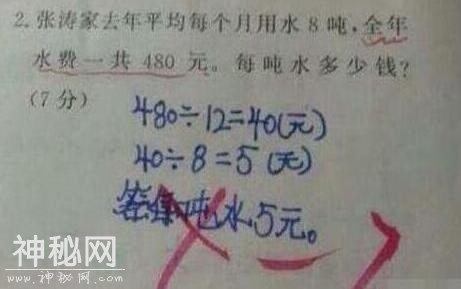 2. 张涛家去年平均每个月用水 8 吨，全年
水费一共 480 元。每吨水多少钱？
（7 分）
480÷12=40(元)
40÷8=5(元)
答:每吨水5元。
神秘网
www.shenmw.com